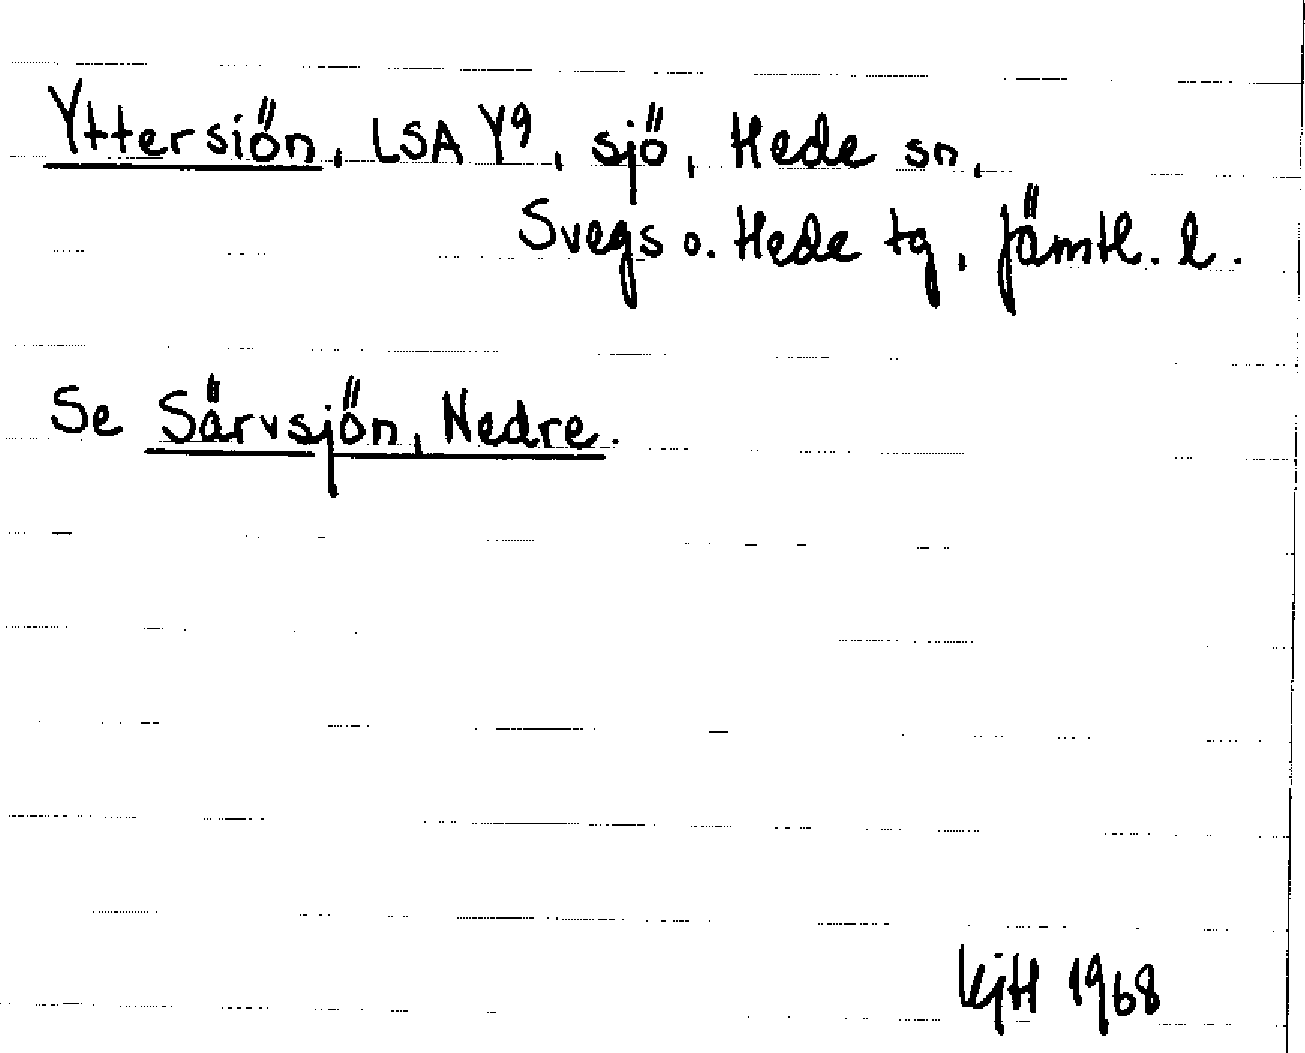 Yttersiön, LSA Y9, sjö, Hede sn,
Svegs o. Hede tg, Jämtl. l.
Se Särvsjön, Nedre.
1968